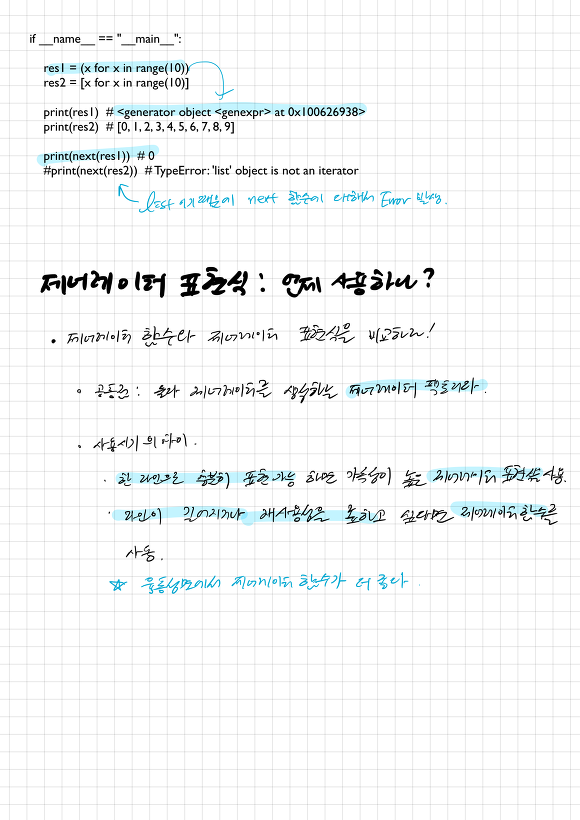 if __name__ == "__main__":
res1 = (x for x in range(10))
res2 = [x for x in range(10)]
print(res1) # <generator object <genexpr> at 0x100626938>
print(res2) # [0, 1, 2, 3, 4, 5, 6, 7, 8, 9]
print(next(res1)) # 0
#print(next(res2)) # TypeError: 'list' object is not an iterator
list 이기때문에 next 함수에 대해서 Error 발생.
제너레이터 표현식 : 언제 사용하나?
• 제너레이터 함수와 제너레이터 표현식을 비교하라!
◦ 공통점 : 둘다 제너레이터를 생성하는 제너레이터 팩토리다.
◦ 사용시기의 차이.
· 한 라인으로 충분히 표현가능 하면 가독성이 높은 제너레이터 표현식 사용.
· 라인이 길어지거나 재사용성을 원하고 싶다면 제너레이터 함수를
사용.
☆ 융통성면에서 제너레이터 함수가 더 좋다.